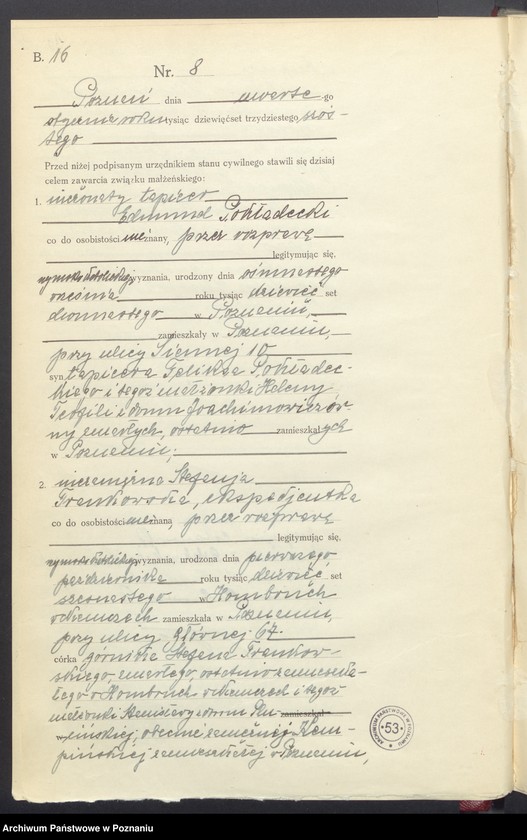 B. 16
Nr. 8
Poznań dnia czwarte go
stycznia roku tysiąc dziewięćset trzydziestego szós-
tego
Przed niżej podpisanym urzędnikiem stanu cywilnego stawili się dzisiaj
celem zawarcia związku małżeńskiego:
1. nieżonaty tapicer
Edmund Pokładecki
co do osobistości nieznany, przez rozprawę
legitymując się,
rzymsko katolickiego wyznania, urodzony dnia ósmnastego
września roku tysiąc dziewięć set
dwunastego w Poznaniu,
zamieszkały w Poznaniu,
przy ulicy Siennej 10
syn tapicera Feliksa Pokładec-
kiego i tegoż małżonki Heleny
Teofili z domu Joachimowiczów-
ny zmarłych, ostatnio zamieszkałych
w Poznaniu,
2. niezamężna Stefanja
Frankowska, ekspedjentka
co do osobistości nieznana przez rozprawę
legitymując się,
rzymsko katolickiego wyznania, urodzona dnia pierwszego
października roku tysiąc dziewięć set
czternastego w Hombruch
w Niemczech zamieszkała w Poznaniu,
przy ulicy Głównej 67.
córka górnika Stefana Frankow-
skiego, zmarłego, ostatnio zamieszka-
łego w Hombruch w Niemczech i tegoż
małżonki Stanisławy z domu zamieszkał
w obecnie zamężnej Kem-
pińskiej zamieszkałej w Poznaniu,
ARCHIWUM PAŃSTWOWE W POZNANIU
53
Archiwum Państwowe w Poznaniu
szukajwarchiwach.pl